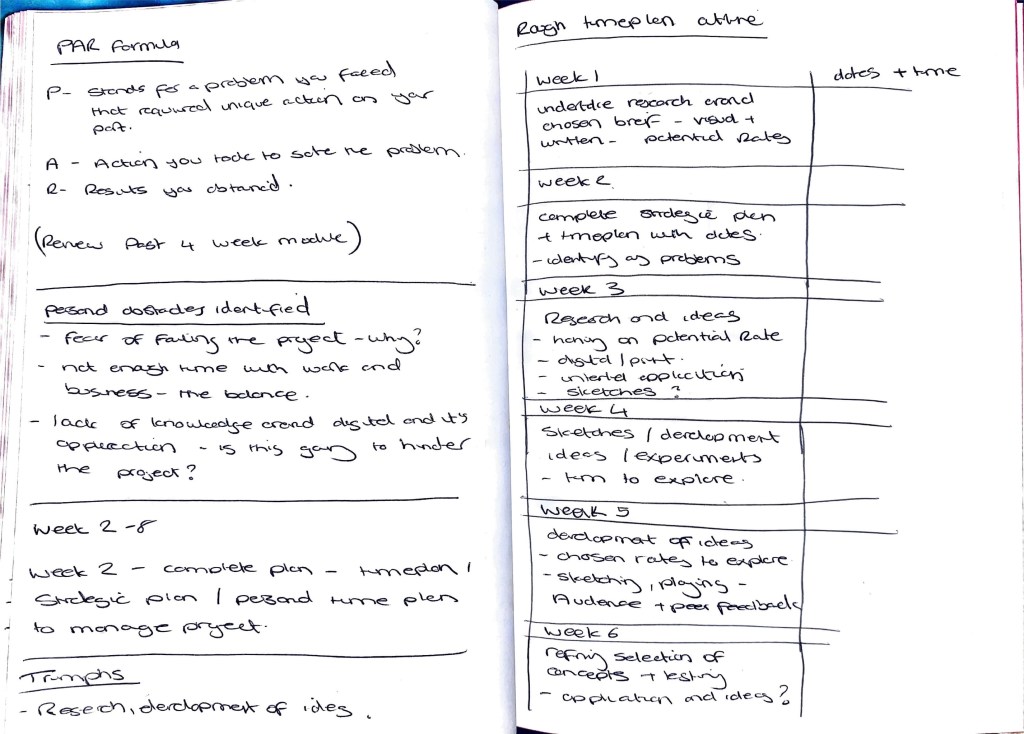 PAR Formula
P- stands for a problem you faced
that required unique action on your
part.
A - Action you took to solve the problem.
R- Results you obtained.
(Review Past 4 week module)
personal obstacles identified
- fear of failing the project - why?
- not enough time with work and
business - the balance.
- lack of knowledge around digital and it's
application - is this going to hinder
the project?
Week 2 -8
Week 2 - complete plan - timeplan /
Strategic plan / personal time plan
to manage project.
Triumphs
- Research, development of ideas.
Rough timeplan outline
week 1
dates + time
undertake research around
chosen brief - visual +
written - potential Routes
week 2
complete strategic plan
+ timeplan with dates.
- identify any problems
week 3
Research and ideas
- honing on potential Route
- digital / print.
- application
- sketches ?
week 4
Sketches / development
ideas / experiments
- time to explore.
week 5
development of ideas
- chosen routes to explore
- sketching, playing -
Audience + peer feedback
week 6
refining selection of
concepts + testing
- application and ideas?